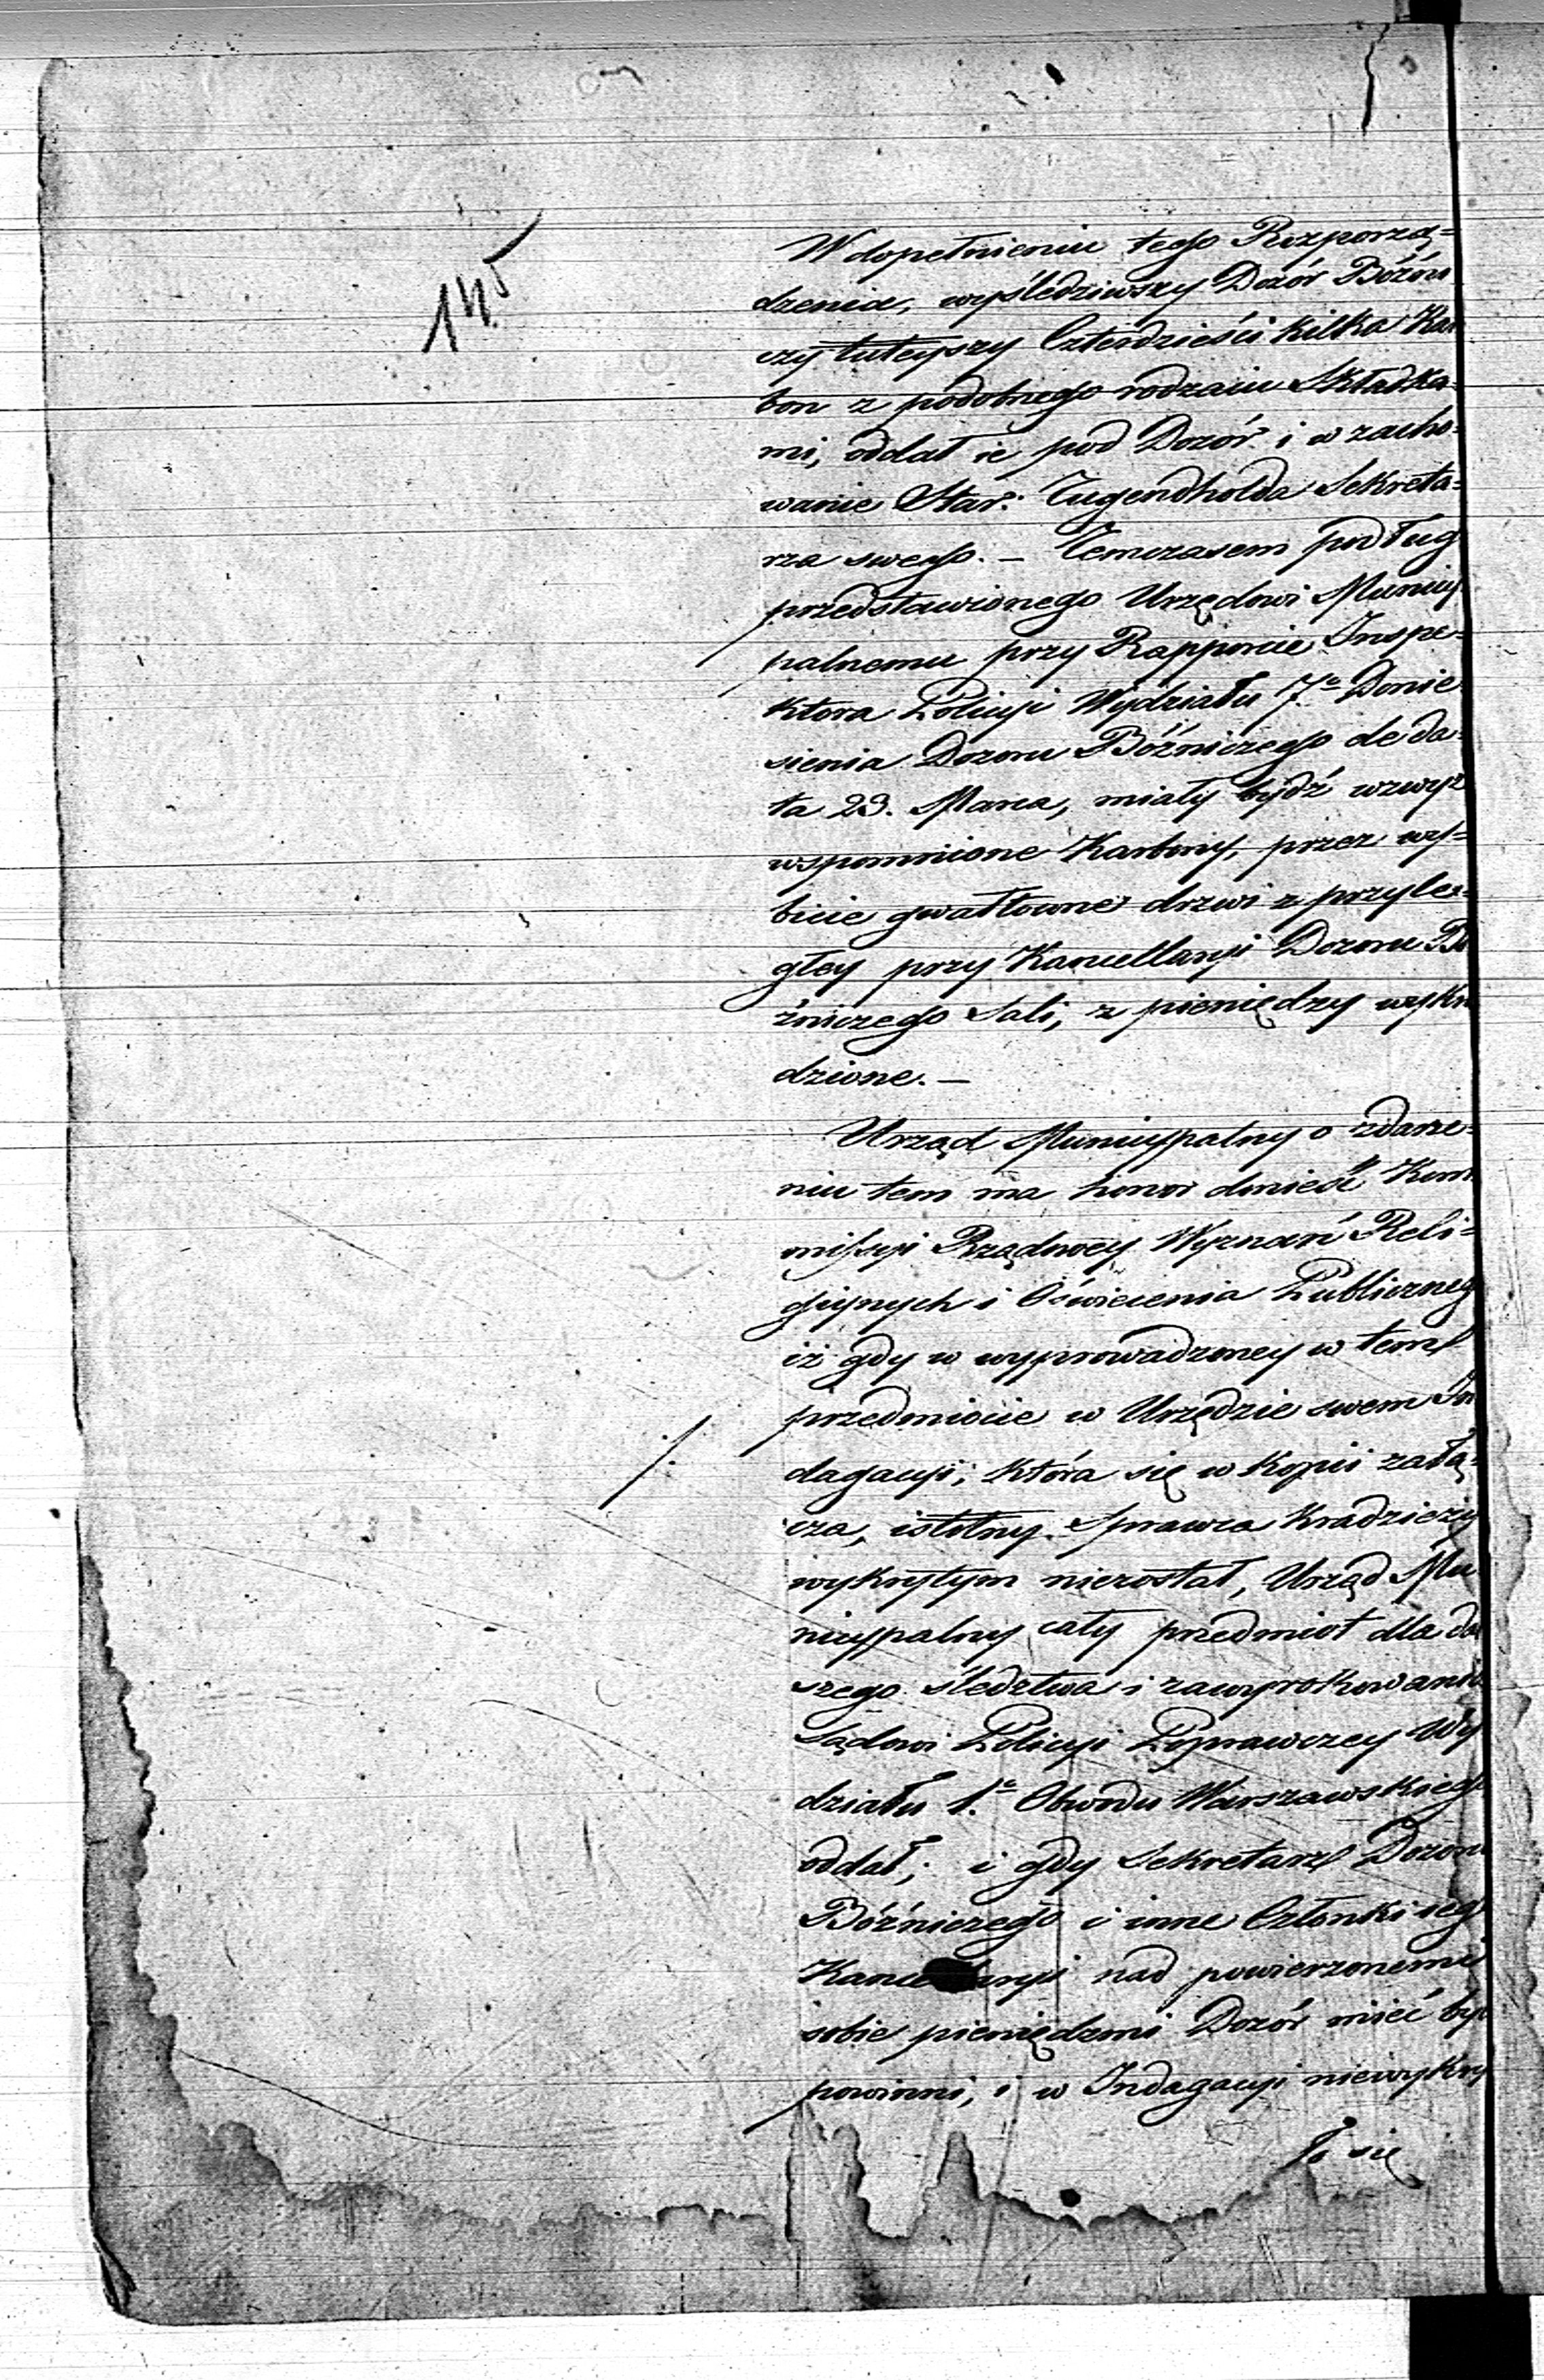 145
W dopełnieniu tego Rozporzą=
dzenia, wyśledziwszy Dozór Bóźni
czy tuteyszy Czterdzieści kilka Kar
bon z podobnego rodzaiu Składka=
mi, oddał ie pod Dozór i w zacho=
wanie Star: Tugendholda Sekreta=
rza swego. — Temczasem podług
przedstawionego Urzędowi Municy
palnemu przy Rapporcie Inspe=
ktora Policyi Wydziału 7º Donie
sienia Dozoru Bóźniczego de da=
ta 23. Marca, miały bydź wzwyż
wspomnione Karbony, przez wy=
bicie gwałtowne drzwi z przyle=
głey przy Kancellaryi Dozoru Bó
źniczego Sali, z pieniędzy wykra
dzione. —
Urząd Municypalny o zdarze=
niu tem ma honor donieść Kom
missyi Rządowey Wyznań Reli=
giynych i Oświecenia Publiczneg
iż gdy w wyprowadzoney w tem
przedmiocie w Urzędzie swem In
dagacyi, która się w Kopii załą=
./.
cza, istotny Sprawca Kradzieży
wykrytym niezostał, Urząd Mu
nicypalny cały przedmiot dla dal
szego śledztwa i zawyrokowania
Sądowi Policyi Poprawczey Wy
działu 1º Obwodu Warszawskiego
oddał; i gdy Sekretarz Dozoru
Bóźniczego i inne Członki ieg
Kance laryi nad powierzonemi
sobie pieniędzmi Dozór mieć byl
powinni, i w Indagacyi niewykry
ło się